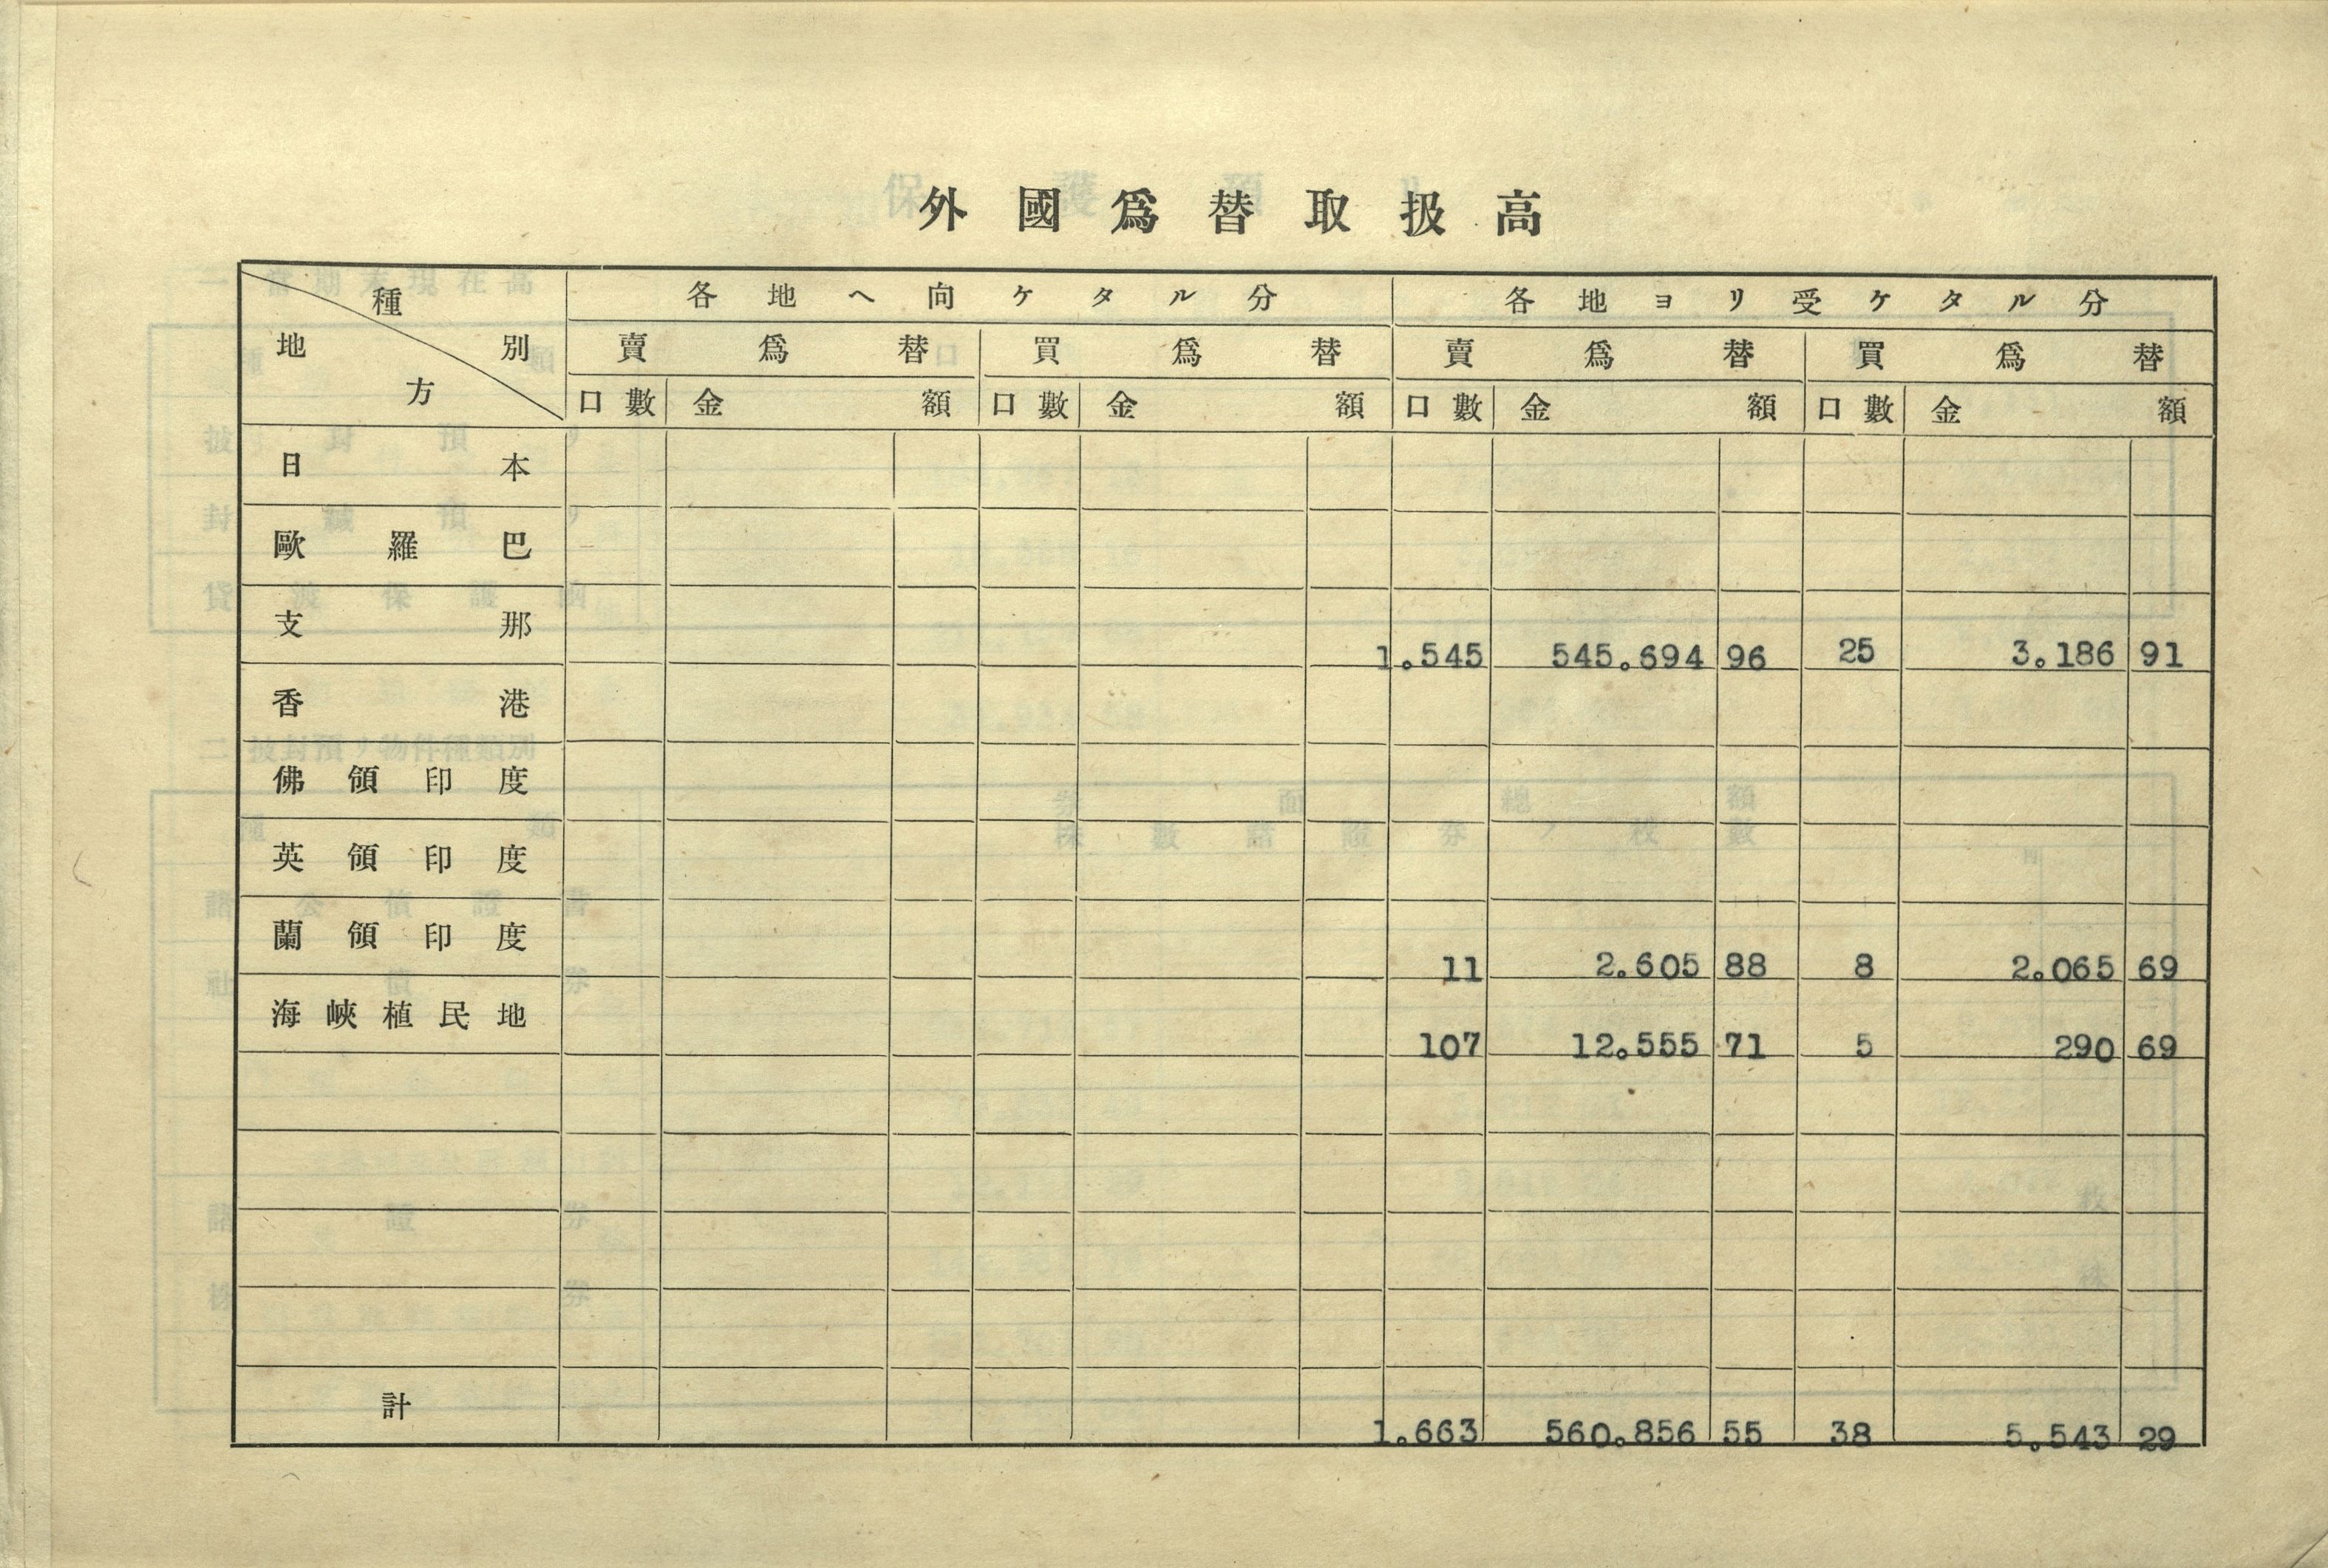 外國爲替取扱高
種別 地方 各地ヘ向ケタル分 各地ヨリ受ケタル分
賣爲替 買爲替 賣爲替 買爲替
口數 金額 口數 金額 口數 金額 口數 金額
日本
歐羅巴
支那 1.545 545.694 96 25 3.186 91
香港
佛領印度
英領印度
蘭領印度 11 2.605 88 8 2.065 69
海峽植民地 107 12.555 71 5 290 69
計 1.663 560.856 55 38 5.543 29